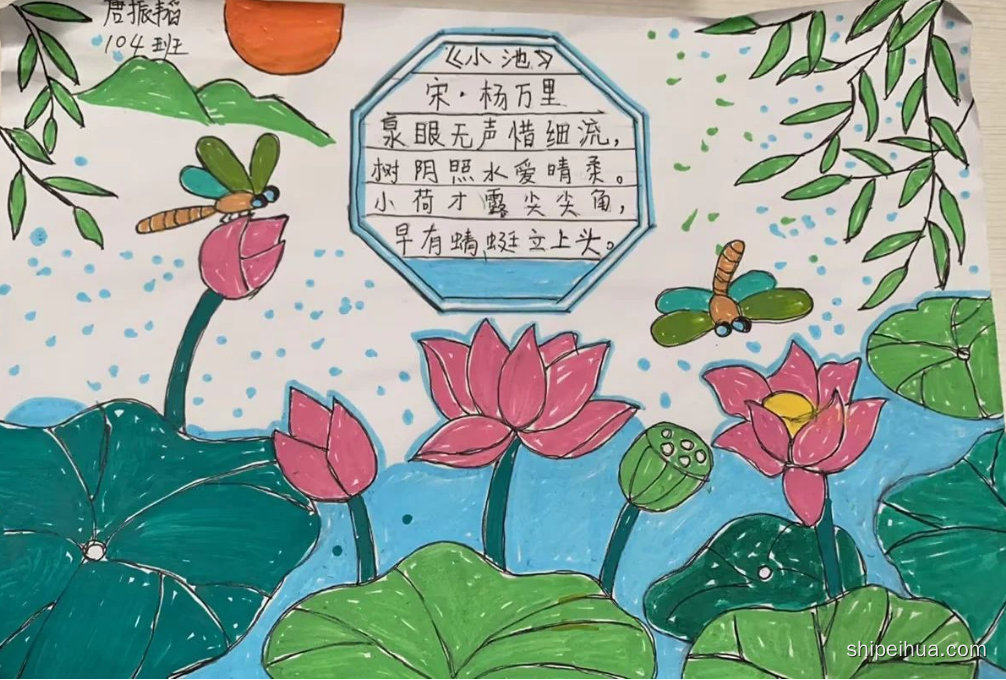 唐振韬
104班
《小池》
宋·杨万里
泉眼无声惜细流,
树阴照水爱晴柔。
小荷才露尖尖角,
早有蜻蜓立上头。
shipeihua.com